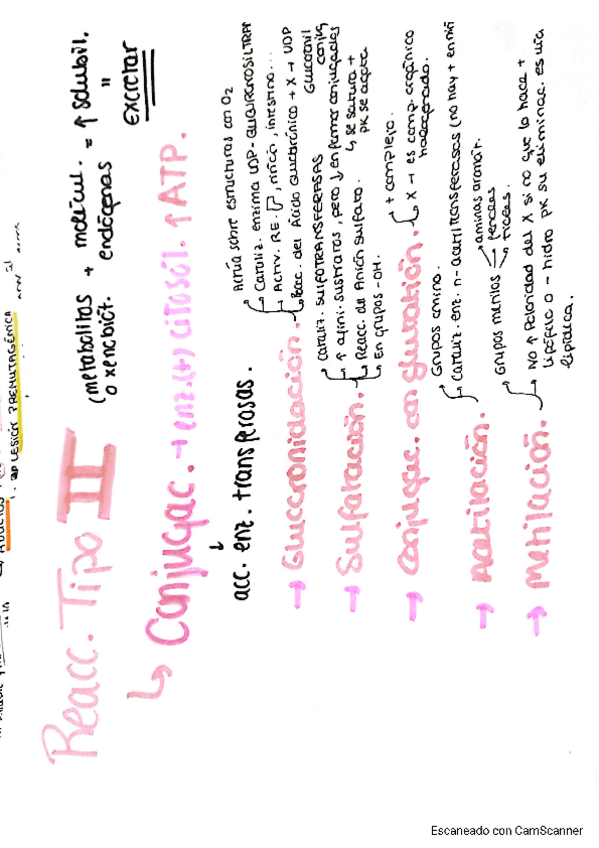 LESIÓN PREMUTAGÉNICA
Reacc. Tipo II
(metabolitos + molécul. = ↑ solubil.
o xenobiót. endógenas "
excretar
↳ Conjugac. → enz. (+) citosól. ↑ ATP.
↓
acc. enz. transferasas.
→ Glucuronidación.
Actúa sobre estructuras con O2
Cataliz. enzima UDP-GLUCURONOSILTRAN
Activ. RE. , riñón, intestino...
Reacc. del Ácido glucurónico + X → UDP
Glucuronil
conjug
→ Sulfatación.
Cataliz. SULFOTRANSFERASAS
↑ afini. sustratos, pero ↓ en formar conjugados
↳ se satura +
pk se agota
Reacc. del Anión sulfato.
En grupos -OH.
→ Conjugac. con glutatión.
+ complejo.
X → es comp. orgánico
halogenado.
→ Acetilación.
Grupos amino.
Cataliz. enz. n-acetiltransferasas (no hay +
→ Metilación.
Grupos metilos
aminas aromát.
fenoles
tioles.
NO ↑ Polaridad del X si no que lo hace +
lipófilo o - hidro pk su eliminac. es vía
lipídica.
Escaneado con CamScanner